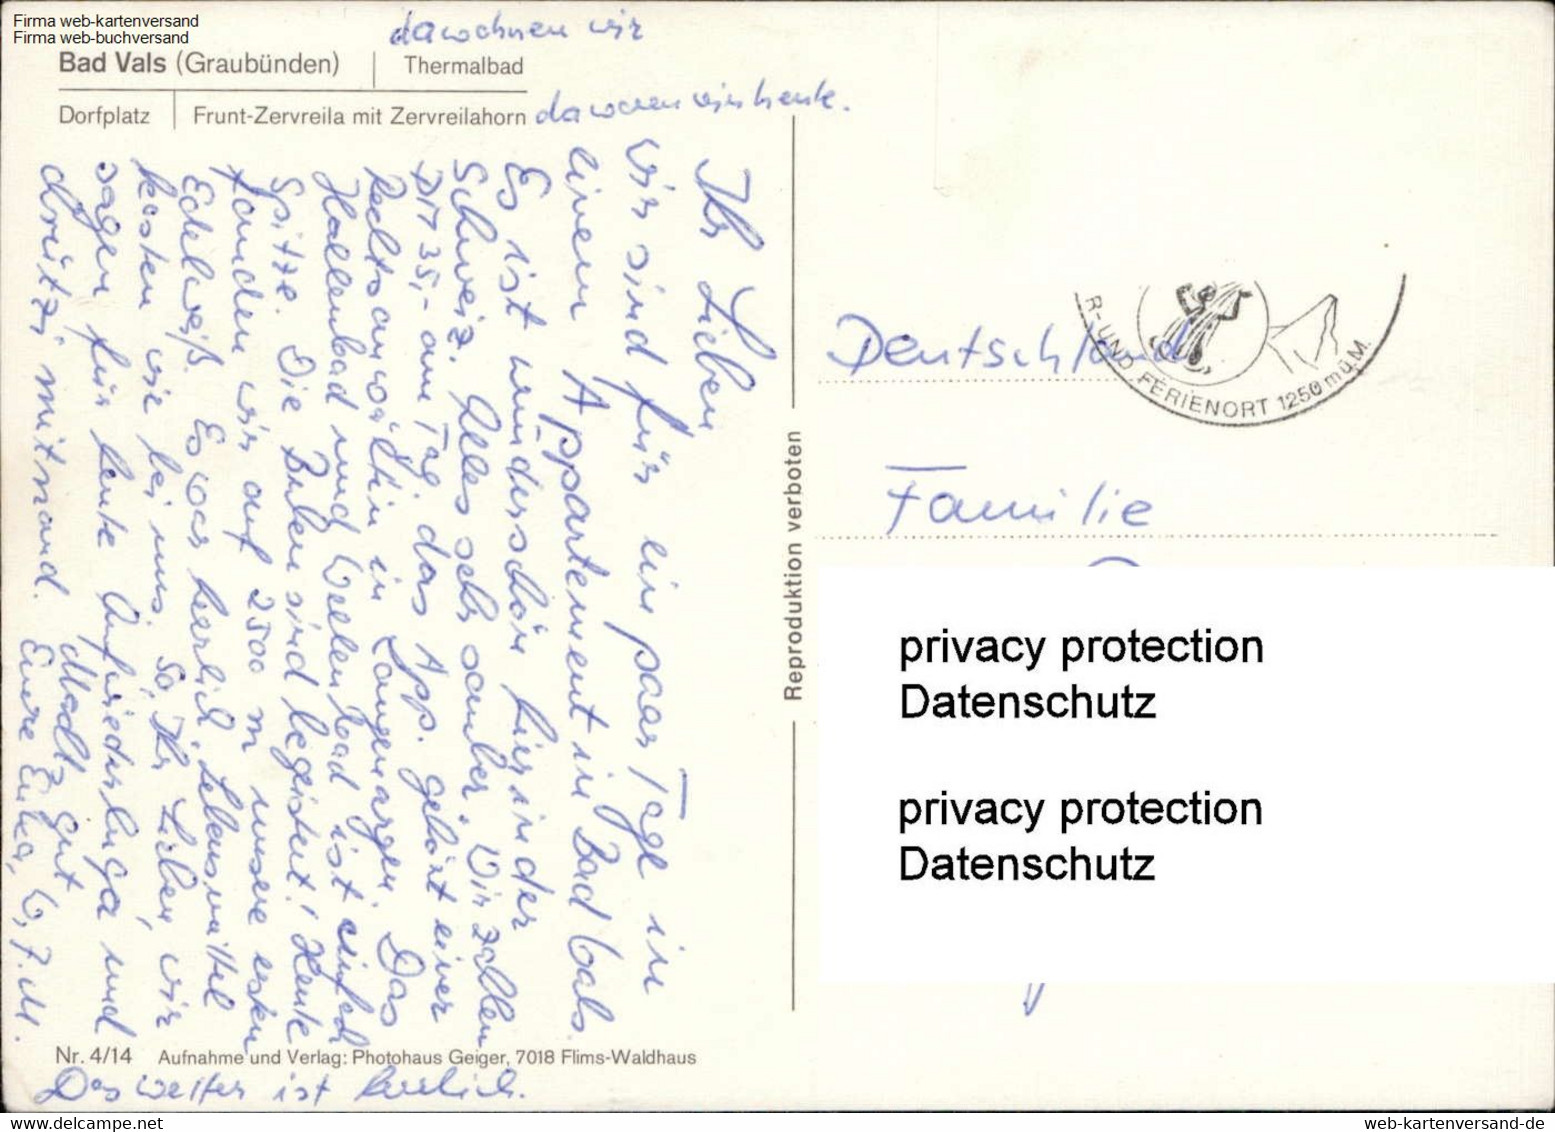 Firma web-kartenversand
Firma web-buchversand
da wohnen wir
Bad Vals (Graubünden) Thermalbad
Dorfplatz Frunt-Zervreila mit Zervreilahorn
da waren wir heute.
Ihr Lieben
wir sind für ein paar Tage in
einem Appartement in Bad Vals.
Es ist wunderschön hier in der
Schweiz. Alles sehr sauber. Wir zahlen
DM 35,- am Tag. das App. gehört einer
Rechtsanwältin in Langenargen. Das
Hallenbad und Wellenbad ist einfach
Spitze. Die Buben sind begeistert! Heute
fanden wir auf 2500 m unsere ersten
Edelweiß. Es war herlich. Lebensmittel
kosten wie bei uns. So, Ihr Lieben, wir
sagen für heute und
mitnand. Macht's gut
Eure
Das Wetter ist herrlich.
Nr. 4/14 Aufnahme und Verlag: Photohaus Geiger, 7018 Flims-Waldhaus
Reproduktion verboten
R- UND FERIENORT 1250 m ü. M.
Deutschland
Familie
privacy protection
Datenschutz
privacy protection
Datenschutz
www.delcampe.net
web-kartenversand-de